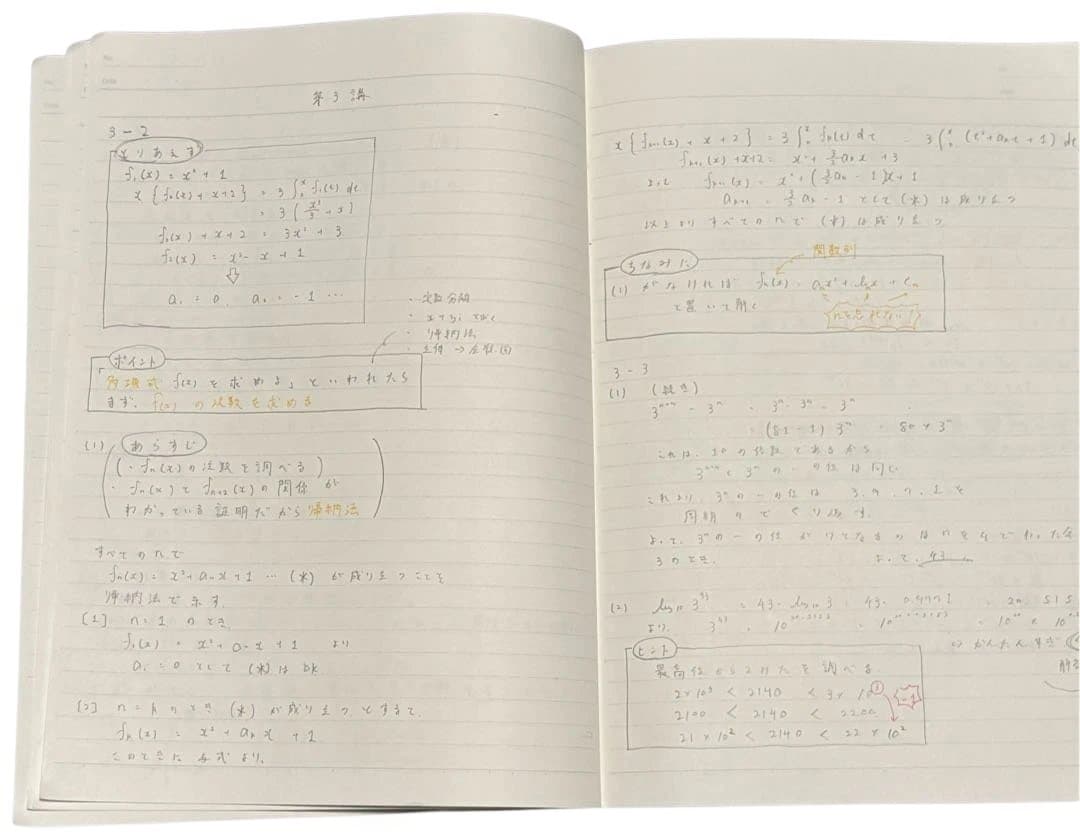 第3講
3-2
とりあえず
f₁(x) = x² + 1
x{f₂(x) + x + 2} = 3∫₀ˣ f₁(t) dt
= 3(x³/3 + x)
f₂(x) + x + 2 = 3x² + 3
f₂(x) = x² - x + 1
⇩
a₁ = 0, a₂ = -1 …
・次数分析
・
・帰納法
・
ポイント
「多項式 f(x) を求めよ」といわれたら
まず、f(x) の次数を求める
(1) あらすじ
・fₙ(x) の次数を調べる
・fₙ(x) と fₙ₊₁(x) の関係が
わかっている証明だから帰納法
すべてのnで
fₙ(x) = x² + aₙx + 1 … (*) が成り立つことを
帰納法で示す。
[1] n = 1 のとき
f₁(x) = x² + a₁x + 1 より
a₁ = 0 として (*) は ok
[2] n = k のとき (*) が成り立つとすると、
fₖ(x) = x² + aₖx + 1
このとき 与式より、
x{fₖ₊₁(x) + x + 2} = 3∫₀ˣ fₖ(t) dt = 3∫₀ˣ (t² + aₖt + 1) dt
fₖ₊₁(x) + x + 2 = x² + 3/2 aₖx + 3
fₖ₊₁(x) = x² + (3/2 aₖ - 1)x + 1
aₖ₊₁ = 3/2 aₖ - 1 として (*) は成り立つ
以上より すべてのnで (*) は成り立つ
ちなみに
関数列
(1) がなければ fₙ(x) = aₙx² + bₙx + cₙ
と置いて解く
nを忘れない!
3-3
(1) (続き)
3ⁿ⁺⁴ - 3ⁿ = 3⁴・3ⁿ - 3ⁿ
= (81 - 1) 3ⁿ = 80 × 3ⁿ
これは、10の倍数であるから
3ⁿ⁺⁴と3ⁿの一の位は同じ
これより、3ⁿの一の位は 3, 9, 7, 1を
周期 のでくり返す。
よって、3ⁿの一の位が7となるのはnを4でわった余
3のとき。 よって、43
(2) log₁₀ 3⁴³ = 43・log₁₀ 3 = 43・0.4771 = 20.515
より、3⁴³
ヒント
最高位から2けたを調べる
2 × 10³ < 2140 < 3 × 10³
-1
2100 < 2140 < 2200
21 × 10² < 2140 < 22 × 10²